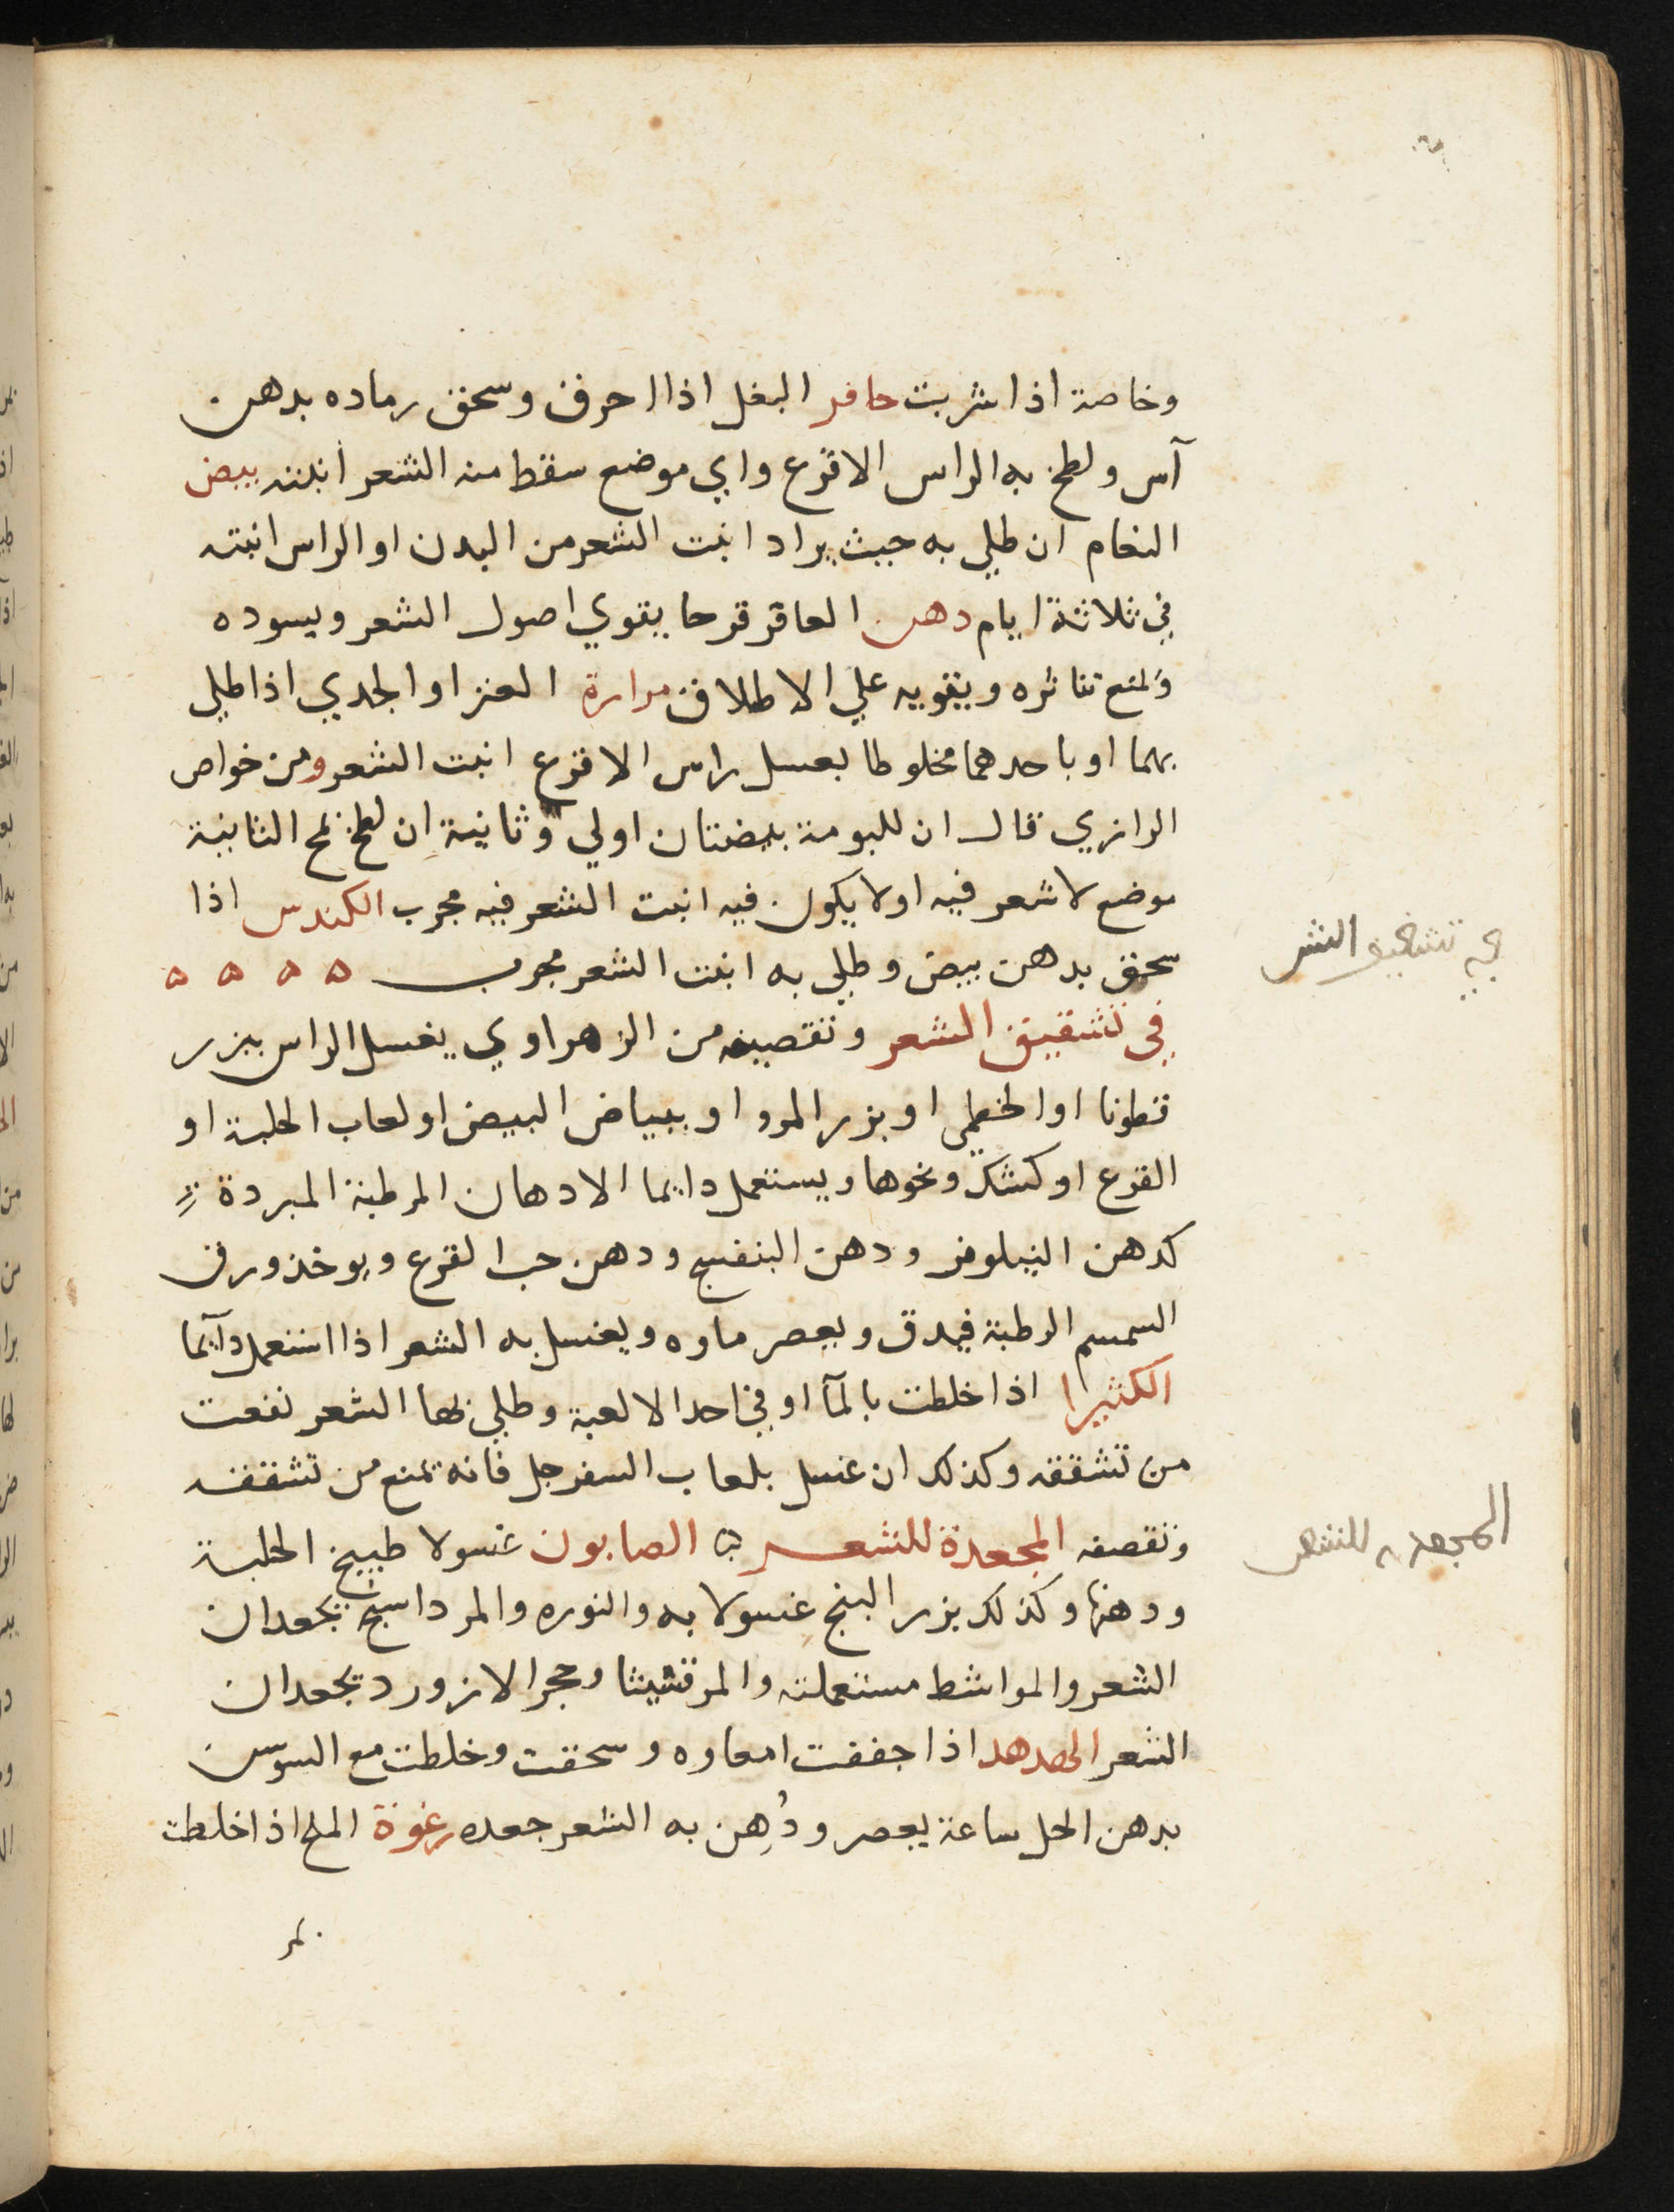 وخاصة اذا شربت حافر البغل اذا احرق وسحق رماده بدهن
آس ولطخ به الراس الاقرع واي موضع سقط منه الشعر انبته بيض
النعام ان طلي به حيث يراد انبت الشعر من البدن او الراس انبته
في ثلاثة ايام دهن العاقرقرحا يقوي اصول الشعر ويسوده
ويمنع تناثره ويقويه علي الاطلاق مرارة العنز او الجدي اذا طلي
بهما او باحدهما مخلوطا بعسل راس الاقرع انبت الشعر ومن خواص
الرازي قال ان للبومة بيضتان اولي وثانية ان لطخ بمح الثانية
موضع لا شعر فيه او لا يكون فيه انبت الشعر فيه مجرب الكندس اذا
سحق بدهن بيض وطلي به انبت الشعر مجرب ه ه ه ه
في تشقيق الشعر
في تشقيق الشعر وتقصيفه من الزهراوي يغسل الراس ببزر
قطونا او الخطمي او بزر المرو او ببياض البيض او لعاب الحلبة او
القرع او كشك ونحوها ويستعمل دايما الادهان المرطبة المبردة
كدهن النيلوفر ودهن البنفسج ودهن حب القرع ويوخذ ورق
السمسم الرطبة فيدق ويعصر ماوه ويغسل به الشعر اذا استعمل دآيما
الكثيرا اذا خلطت بالمآ او في احد الالعبة وطلي بها الشعر نفعت
من تشققه وكذلك ان غسل بلعاب السفرجل فانه يمنع من تشققه
وتقصفه المجعدة للشعر ه الصابون غسولا طبيخ الحلبة
المجعده للشعر
ودهنها وكذلك بزر البنج غسولا به والنوره والمرداسنج يجعدان
الشعر والمواشط مستعملته والمرقشيثا وحجر الازورد يجعدان
الشعر الهدهد اذا جففت امعاوه وسحقت وخلطت مع السوسن
بدهن الحل ساعة يعصر ودُهِن به الشعر جعده رغوة الملح اذا خلطت